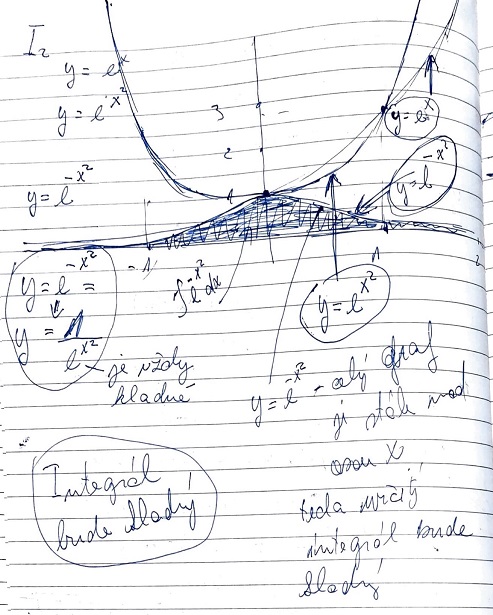 I₂
y = eˣ
y = e^x²
y = e^-x²
3
2
1
y = eˣ
y = e^-x²
-1
1
2
y = e^-x² =
y = 1/e^x²
je vždy
kladné
∫e^-x² dx
y = e^x²
y = e^-x² - celý graf
je stále nad
osou x
teda určitý
integrál bude
kladný
Integrál
bude kladný